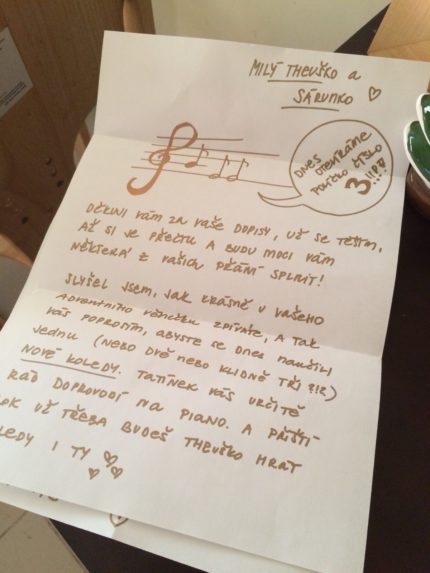 MILÝ THEUŠKO A
SÁRUNKO ♡
DNES
OTEVÍRÁME
POLÍČKO ČÍSLO
3!!!
DĚKUJI VÁM ZA VAŠE DOPISY, UŽ SE TĚŠÍM,
AŽ SI JE PŘEČTU A BUDU MOCI VÁM
NĚKTERÁ Z VAŠICH PŘÁNÍ SPLNIT!
SLYŠEL JSEM, JAK KRÁSNĚ U VAŠEHO
ADVENTNÍHO VĚNEČKU ZPÍVÁTE, A TAK
VÁS POPROSÍM, ABYSTE SE DNES NAUČILI
JEDNU (NEBO DVĚ NEBO KLIDNĚ TŘI?!?)
NOVÉ KOLEDY. TATÍNEK VÁS URČITĚ
RÁD DOPROVODÍ NA PIANO. A PŘÍŠTÍ
ROK UŽ TŘEBA BUDEŠ THEUŠKO HRÁT
LEDY I TY ♡♡♡